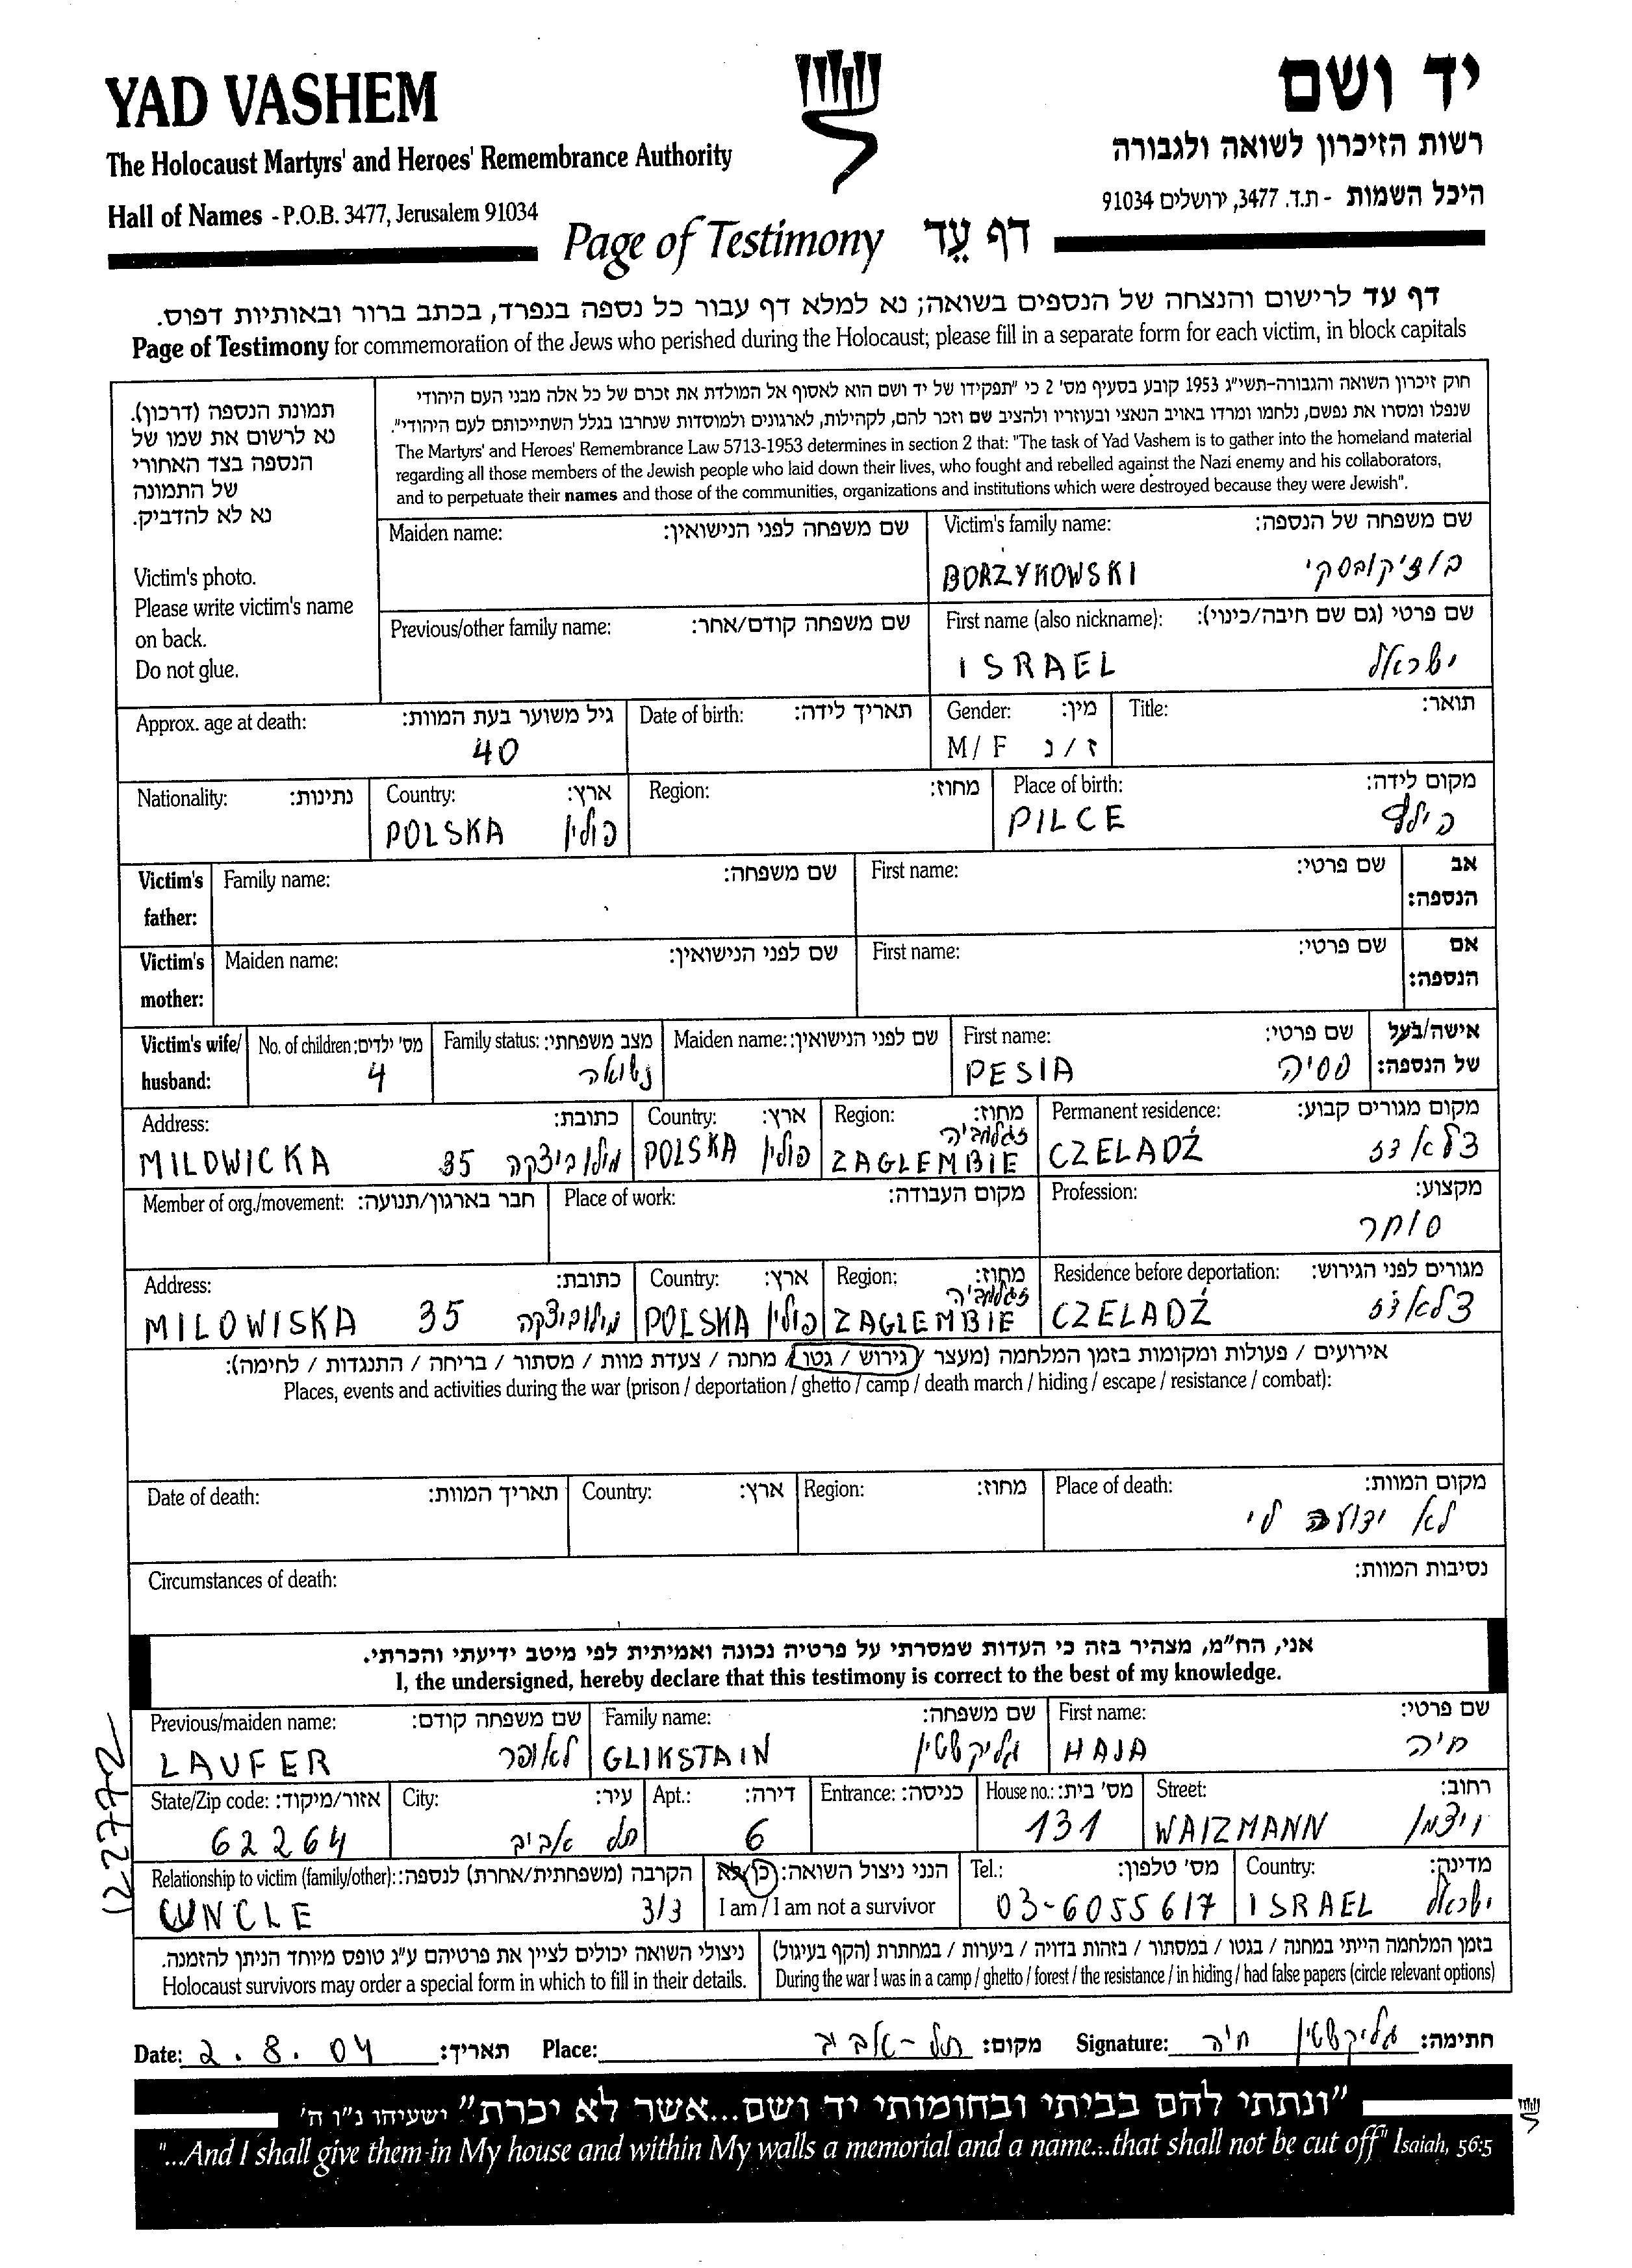 YAD VASHEM
יד ושם
The Holocaust Martyrs' and Heroes' Remembrance Authority
רשות הזיכרון לשואה ולגבורה
Hall of Names - P.O.B. 3477, Jerusalem 91034
היכל השמות - ת.ד. 3477, ירושלים 91034
Page of Testimony דף עֵד
דף עד לרישום והנצחה של הנספים בשואה; נא למלא דף עבור כל נספה בנפרד, בכתב ברור ובאותיות דפוס.
Page of Testimony for commemoration of the Jews who perished during the Holocaust; please fill in a separate form for each victim, in block capitals
תמונת הנספה (דרכון).
נא לרשום את שמו של
הנספה בצד האחורי
של התמונה
נא לא להדביק.
Victim's photo.
Please write victim's name
on back.
Do not glue.
חוק זיכרון השואה והגבורה-תשי״ג 1953 קובע בסעיף מס' 2 כי "תפקידו של יד ושם הוא לאסוף אל המולדת את זכרם של כל אלה מבני העם היהודי
שנפלו ומסרו את נפשם, נלחמו ומרדו באויב הנאצי ובעוזריו ולהציב שם וזכר להם, לקהילות, לארגונים ולמוסדות שנחרבו בגלל השתייכותם לעם היהודי".
The Martyrs' and Heroes' Remembrance Law 5713-1953 determines in section 2 that: "The task of Yad Vashem is to gather into the homeland material
regarding all those members of the Jewish people who laid down their lives, who fought and rebelled against the Nazi enemy and his collaborators,
and to perpetuate their names and those of the communities, organizations and institutions which were destroyed because they were Jewish".
Maiden name: שם משפחה לפני הנישואין: Victim's family name: שם משפחה של הנספה:
BORZYKOWSKI בוז'יקובסקי
Previous/other family name: שם משפחה קודם/אחר: First name (also nickname): שם פרטי (גם שם חיבה/כינוי):
ISRAEL ישראל
Approx. age at death: גיל משוער בעת המוות: Date of birth: תאריך לידה: Gender: מין: Title: תואר:
40 M / F ז / נ
Nationality: נתינות: Country: ארץ: Region: מחוז: Place of birth: מקום לידה:
POLSKA פולין PILCE
Victim's father: Family name: שם משפחה: First name: שם פרטי: אב הנספה:
Victim's mother: Maiden name: שם לפני הנישואין: First name: שם פרטי: אם הנספה:
Victim's wife/ husband: No. of children: מס' ילדים: Family status: מצב משפחתי: Maiden name: שם לפני הנישואין: First name: שם פרטי: אישה/בעל של הנספה:
4 נשואה PESIA פסיה
Address: כתובת: Country: ארץ: Region: מחוז: Permanent residence: מקום מגורים קבוע:
MILOWICKA 35 מילוביצקה POLSKA פולין ZAGLEMBIE זגלמביה CZELADŹ צלאדז
Member of org./movement: חבר בארגון/תנועה: Place of work: מקום העבודה: Profession: מקצוע:
סוחר
Address: כתובת: Country: ארץ: Region: מחוז: Residence before deportation: מגורים לפני הגירוש:
MILOWISKA 35 מילוביצקה POLSKA פולין ZAGLEMBIE זגלמביה CZELADŹ צלאדז
אירועים / פעולות ומקומות בזמן המלחמה (מעצר / גירוש / גטו / מחנה / צעדת מוות / מסתור / בריחה / התנגדות / לחימה):
Places, events and activities during the war (prison / deportation / ghetto / camp / death march / hiding / escape / resistance / combat):
Date of death: תאריך המוות: Country: ארץ: Region: מחוז: Place of death: מקום המוות:
לא ידועה לי
Circumstances of death: נסיבות המוות:
אני, הח״מ, מצהיר בזה כי העדות שמסרתי על פרטיה נכונה ואמיתית לפי מיטב ידיעתי והכרתי.
I, the undersigned, hereby declare that this testimony is correct to the best of my knowledge.
Previous/maiden name: שם משפחה קודם: Family name: שם משפחה: First name: שם פרטי:
LAUFER לאופר GLIKSTAIN גליקשטין HAJA חיה
State/Zip code: אזור/מיקוד: City: עיר: Apt.: דירה: Entrance: כניסה: House no.: מס' בית: Street: רחוב:
62264 תל אביב 6 131 WAIZMANN ויצמן
Relationship to victim (family/other): הקרבה (משפחתית/אחרת) לנספה: הנני ניצול השואה: כן / לא Tel.: מס' טלפון: Country: מדינה:
UNCLE דוד I am / I am not a survivor 03-6055617 ISRAEL ישראל
ניצולי השואה יכולים לציין את פרטיהם ע״ג טופס מיוחד הניתן להזמנה.
Holocaust survivors may order a special form in which to fill in their details.
בזמן המלחמה הייתי במחנה / בגטו / במסתור / בזהות בדויה / ביערות / במחתרת (הקף בעיגול)
During the war I was in a camp / ghetto / forest / the resistance / in hiding / had false papers (circle relevant options)
Date: 2.8.04 תאריך: Place: תל-אביב מקום: Signature: גליקשטין חיה חתימה:
"ונתתי להם בביתי ובחומותי יד ושם...אשר לא יכרת" ישעיהו נ״ו ה'
"...And I shall give them in My house and within My walls a memorial and a name...that shall not be cut off" Isaiah, 56:5
122772